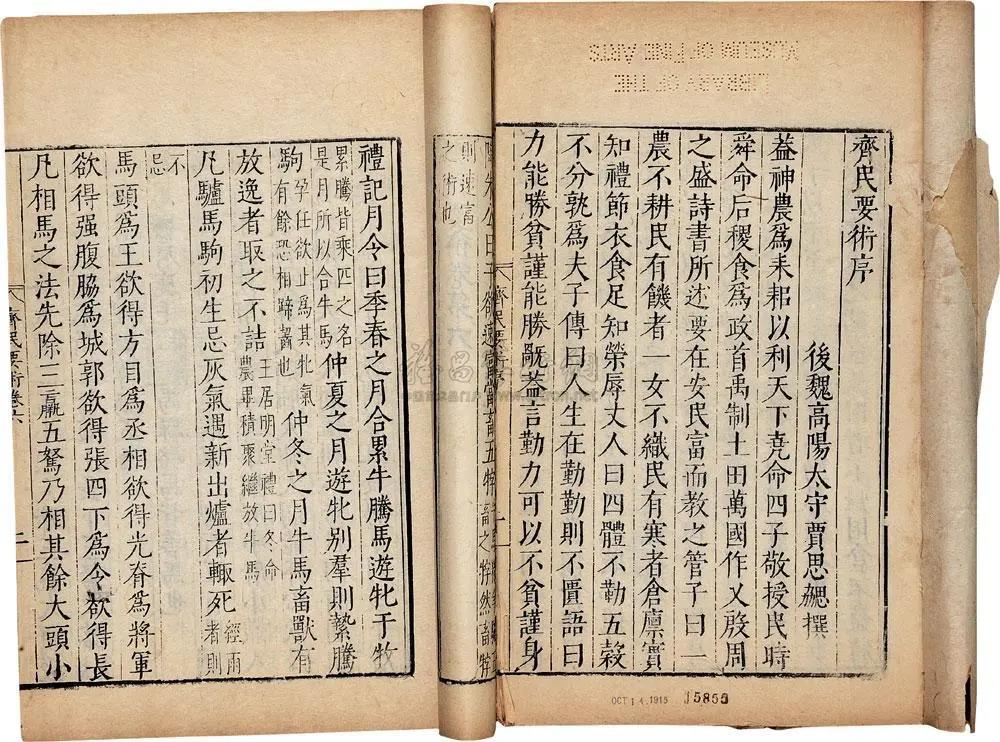 LIBRARY OF THE
MUSEUM OF FINE ARTS
齊民要術序
後魏高陽太守賈思勰撰
葢神農爲耒耜以利天下堯命四子敬授民時
舜命后稷食爲政首禹制土田萬國作乂殷周
之盛詩書所述要在安民富而教之管子曰一
農不耕民有饑者一女不織民有寒者倉廪實
知禮節衣食足知榮辱丈人曰四體不勤五穀
不分孰爲夫子傳曰人生在勤勤則不匱語曰
力能勝貧謹能勝旤葢言勤力可以不貧謹身
齊民要術序
欲速富當畜五牸
畜之牸然畜牸
則速富
之術也
禮記月令曰季春之月合累牛騰馬遊牝于牧
累騰皆乘匹之名是月所以合牛馬仲夏之月遊牝别羣則縶騰
駒孕任欲止爲其牝氣有餘恐相蹄齧也仲冬之月牛馬畜獸有
放逸者取之不詰王居明堂禮曰冬命農畢積聚繼放牛馬
凡驢馬駒初生忌灰氣遇新出爐者輙死經雨者則
不忌
馬頭爲王欲得方目爲丞相欲得光脊爲將軍
欲得强腹脇爲城郭欲得張四下爲令欲得長
凡相馬之法先除三羸五駑乃相其餘大頭小
齊民要術卷六
OCT 14.1915
15855